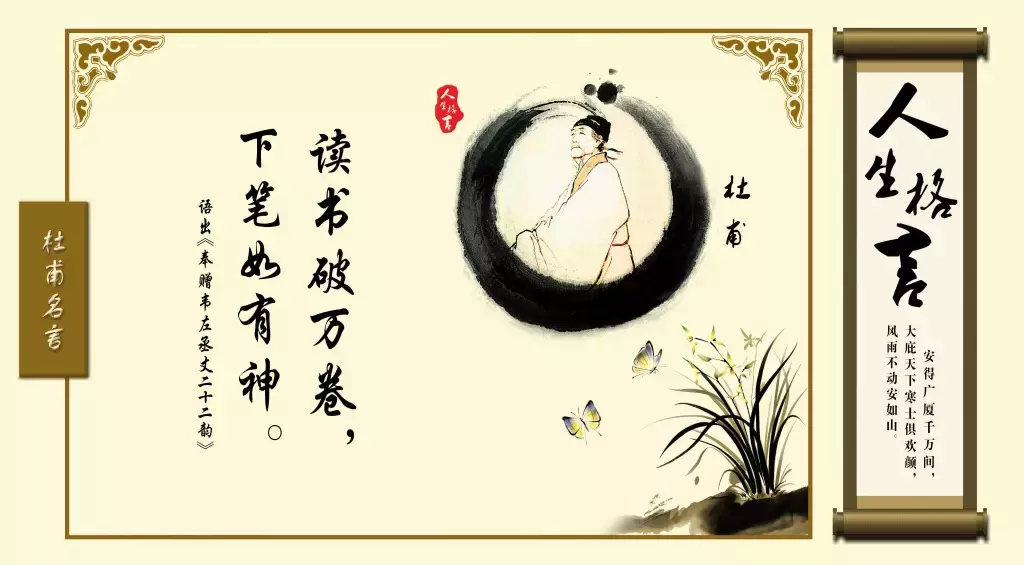 人生格言
安得广厦千万间，
大庇天下寒士俱欢颜，
风雨不动安如山。
杜甫
人生格言
读书破万卷，
下笔如有神。
语出《奉赠韦左丞丈二十二韵》
杜甫名言